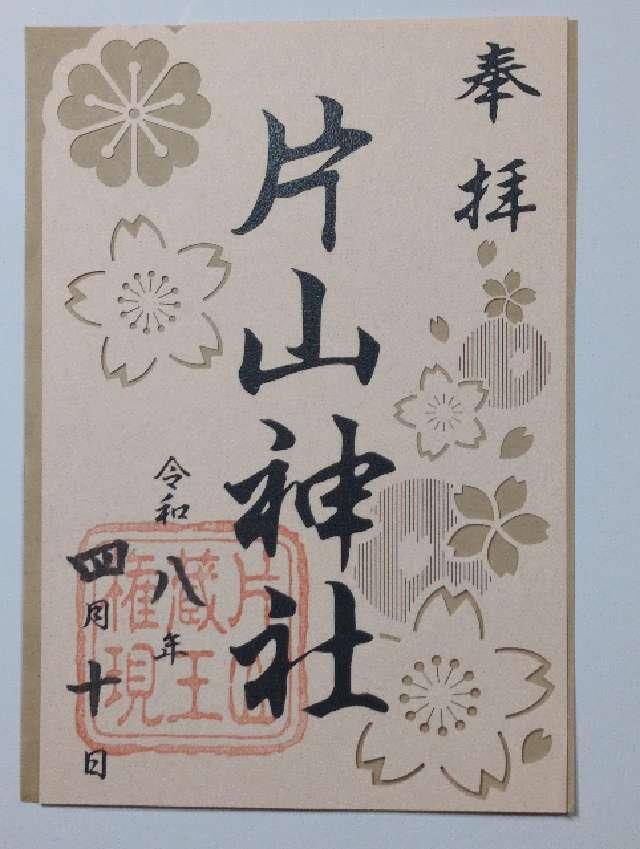 奉拝
片山神社
令和八年
四月十日
片山
蔵王
権現